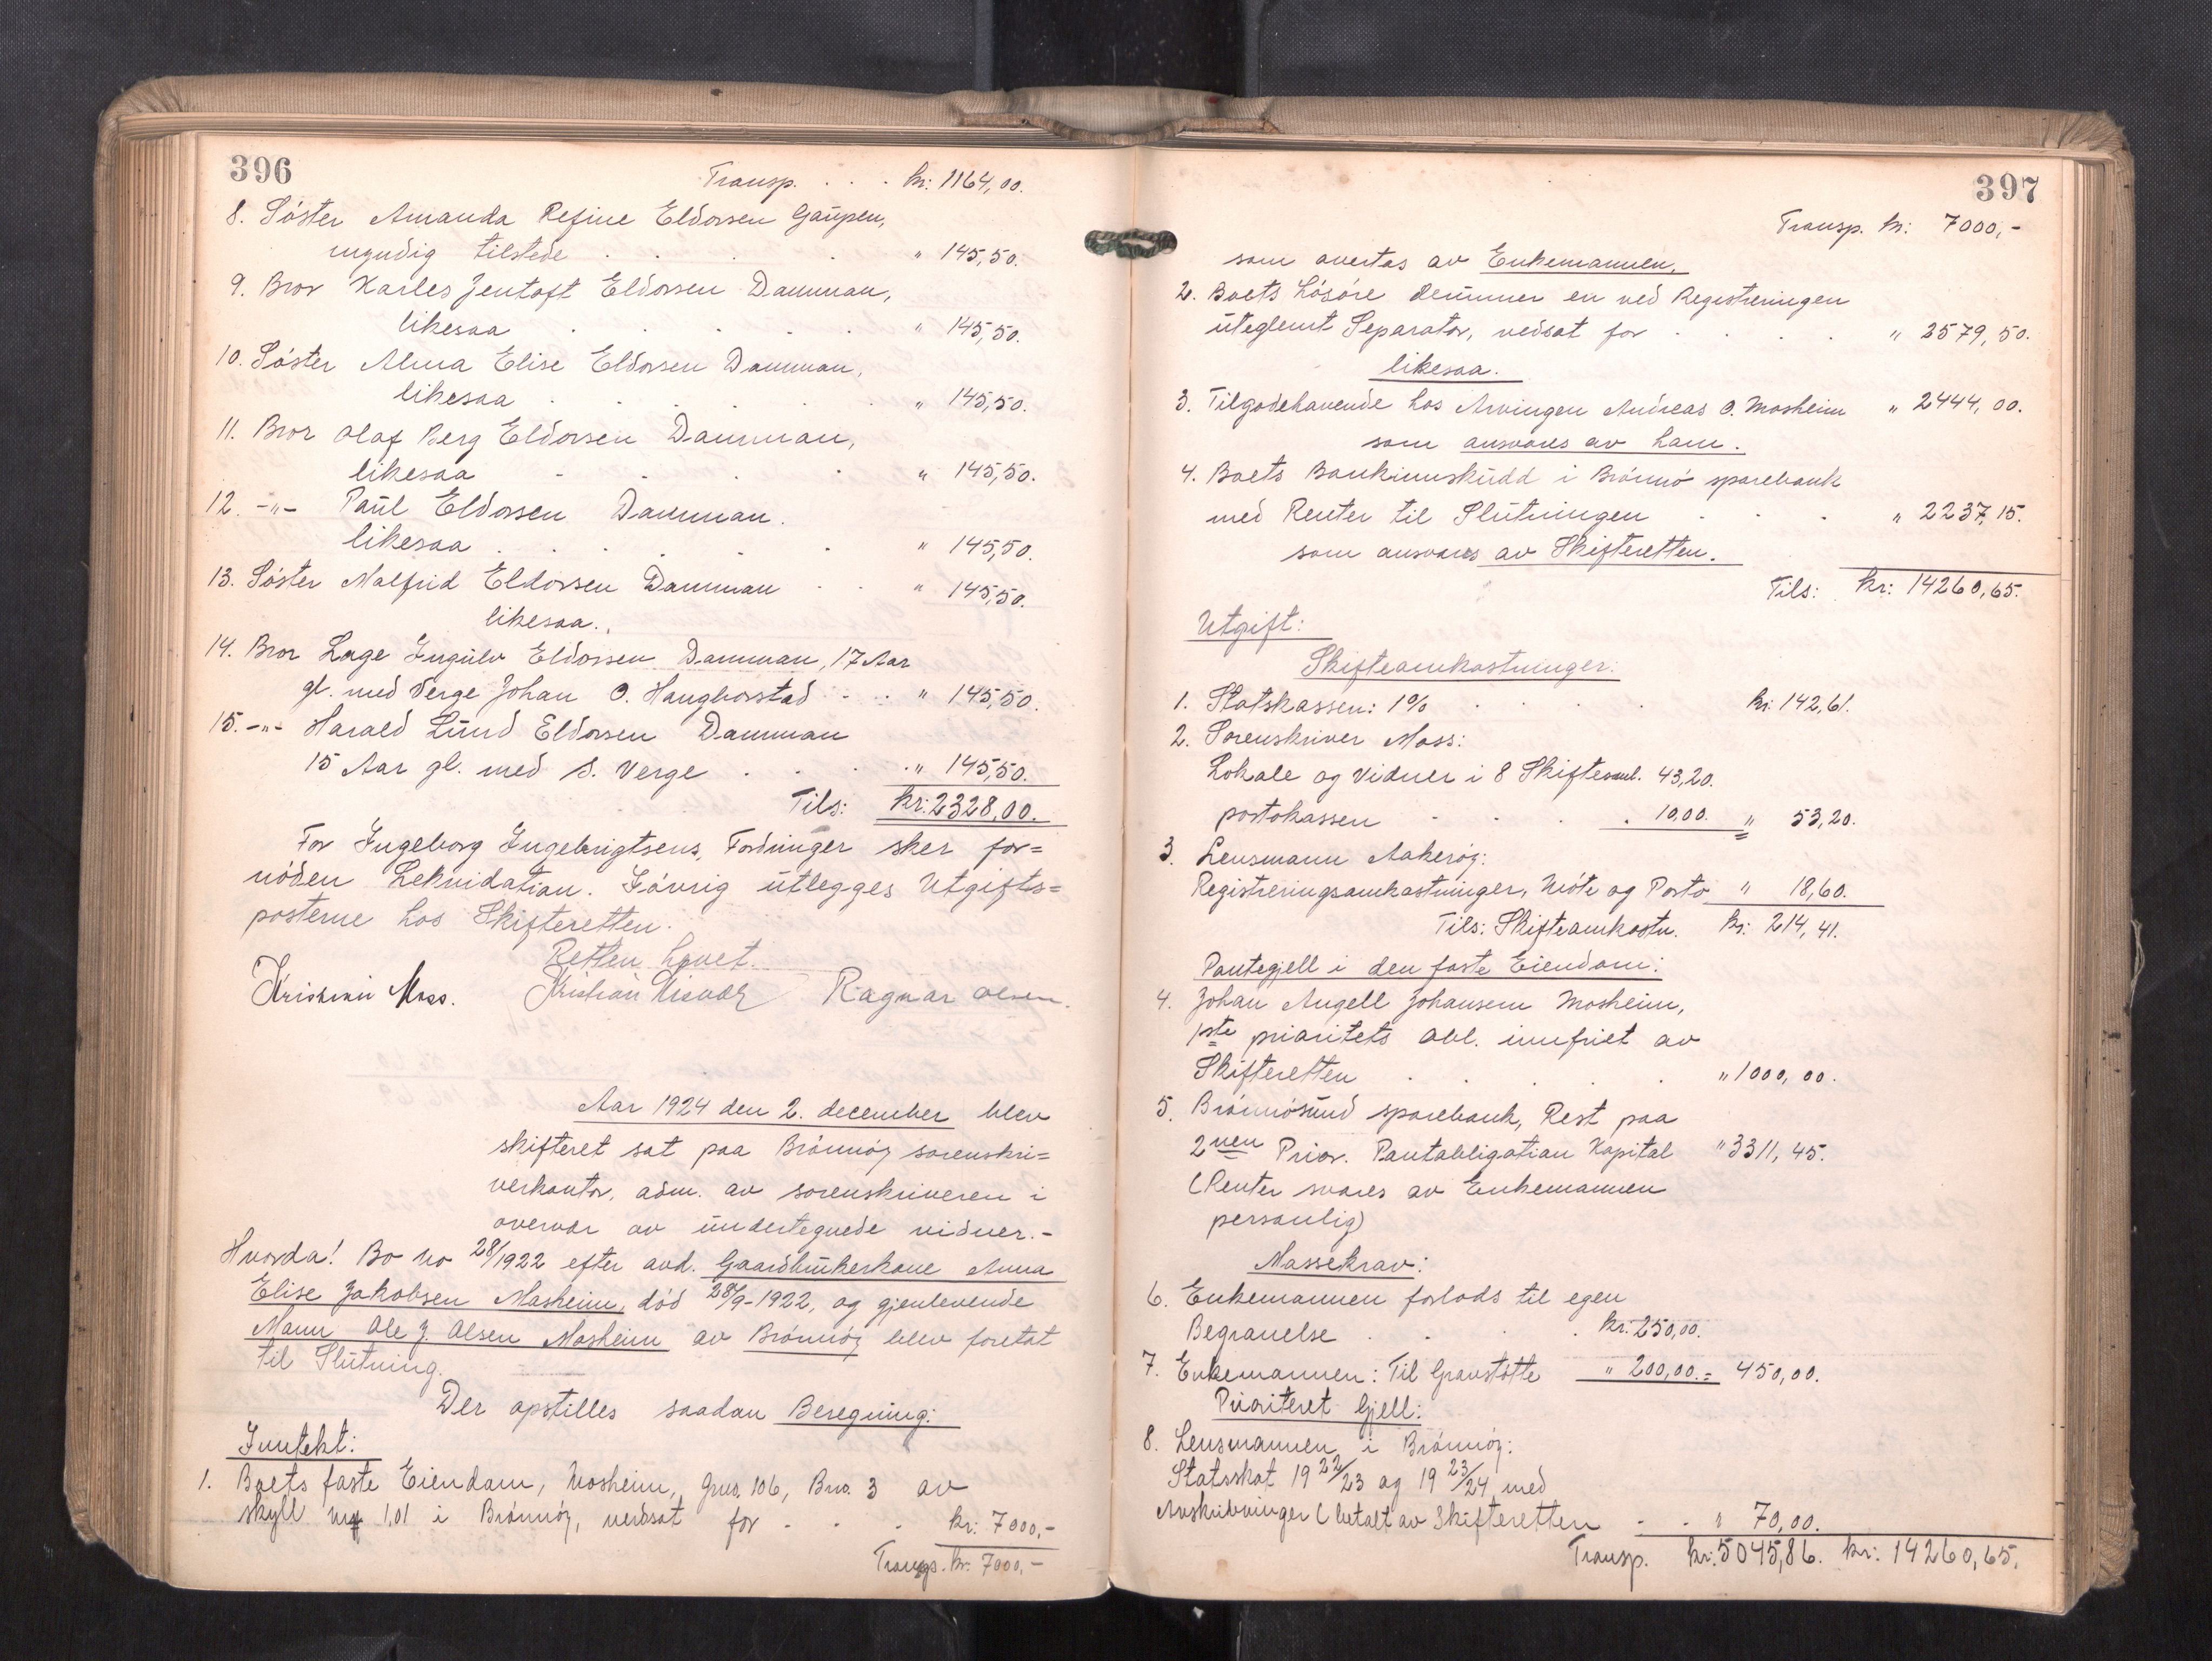 396
Transp. . . . kr: 1164,00.
8. Søster Amanda Refine Eldorsen Gaupen,
myndig tilstede . . . . " 145,50.
9. Bror Karles Jentoft Eldorsen Damman,
likesaa . . . . . " 145,50.
10. Søster Alma Elise Eldorsen Damman,
likesaa . . . . . " 145,50.
11. Bror Olaf Berg Eldorsen Damman,
likesaa - . . . " 145,50.
12. -"- Paul Eldorsen Damman.
likesaa . . . . . " 145,50.
13. Søster Malfrid Eldorsen Damman . . " 145,50.
likesaa.
14. Bror Lage Ingulv Eldorsen Damman, 17 Aar
gl. med Verge Johan O. Haugborstad - . . " 145,50.
15. -"- Harald Lund Eldorsen Damman
15 Aar gl. med s. Verge . . . . " 145,50.
Tils: kr: 2328,00.
For Ingeborg Ingebrigtsens Fordringer sker for=
nøden Lekvidation. Iøvrig utlegges Utgifts=
posterne hos Skifteretten.
Retten hævet.
Kristian Moss. Ragnar Olsen.
Aar 1924 den 2. december blev
skifteret sat paa Brønnøy sorenskri=
verkontor, adm. av sorenskriveren i
overvær av undertegnede vidner.-
Hvorda! Bo No 28/1922 efter avd. Gaardbrukerkone Anna
Elise Jakobsen Mosheim, død 28/9-1922, og gjenlevende
Mann Ole J. Olsen Mosheim av Brønnøy blev foretat
til Slutning.
Der opstilles saadan Beregning:
Inntekt:
1. Boets faste Eiendom, Mosheim, Gno. 106, Bno. 3 av
skyld 1,01 i Brønnøy, verdsat for - . . kr: 7000,-
Transp. kr. 7000,-
397
Transp. kr: 7000,-
som overtas av Enkemannen.
2. Boets Løsøre derunner en ved Registreringen
uteglemt Separator, verdsat for . . . . " 2579,50.
likesaa.
3. Tilgodehavende hos Arvingen Andreas O. Mosheim " 2444,00.
som ansvares av ham.
4. Boets Bankinnskudd i Brønnø sparebank
med Renter til Slutningen . . . " 2237,15.
som ansvares av Skifteretten.
Tils: kr: 14260,65.
Utgift:
Skifteomkostninger:
1. Statskassen: 1% . . . . kr: 142,61.
2. Sorenskriver Moss:
Lokale og Vidner i 8 Skiftesaml. 43,20.
portokassen - . . . 10,00. " 53,20.
3. Lensmann Aakerøy:
Registreringsomkostninger, Møte og Porto " 18,60.
Tils: Skifteomkostn. kr: 214,41.
Pantegjell i den faste Eiendom:
4. Johan Angell Johansen Mosheim,
1ste prioritets obl. innfriet av
Skifteretten . . . . " 1000,00.
5. Brønnøsund sparebank, Rest paa
2nen Prior. Pantobligation Kapital " 3311,45.
(Renter svares av Enkemannen
personlig)
Massekrav:
6. Enkemannen forlods til egen
Begravelse . . . . kr: 250,00.
7. Enkemannen: Til Gravstøtte " 200,00.= 450,00.
Prioritert Gjell:
8. Lensmannen i Brønnøy:
Statsskat 1922/23 og 1923/24 med
Avskrivninger (betalt av Skifteretten - . " 70,00.
Transp. kr: 5045,86. kr: 14260,65.